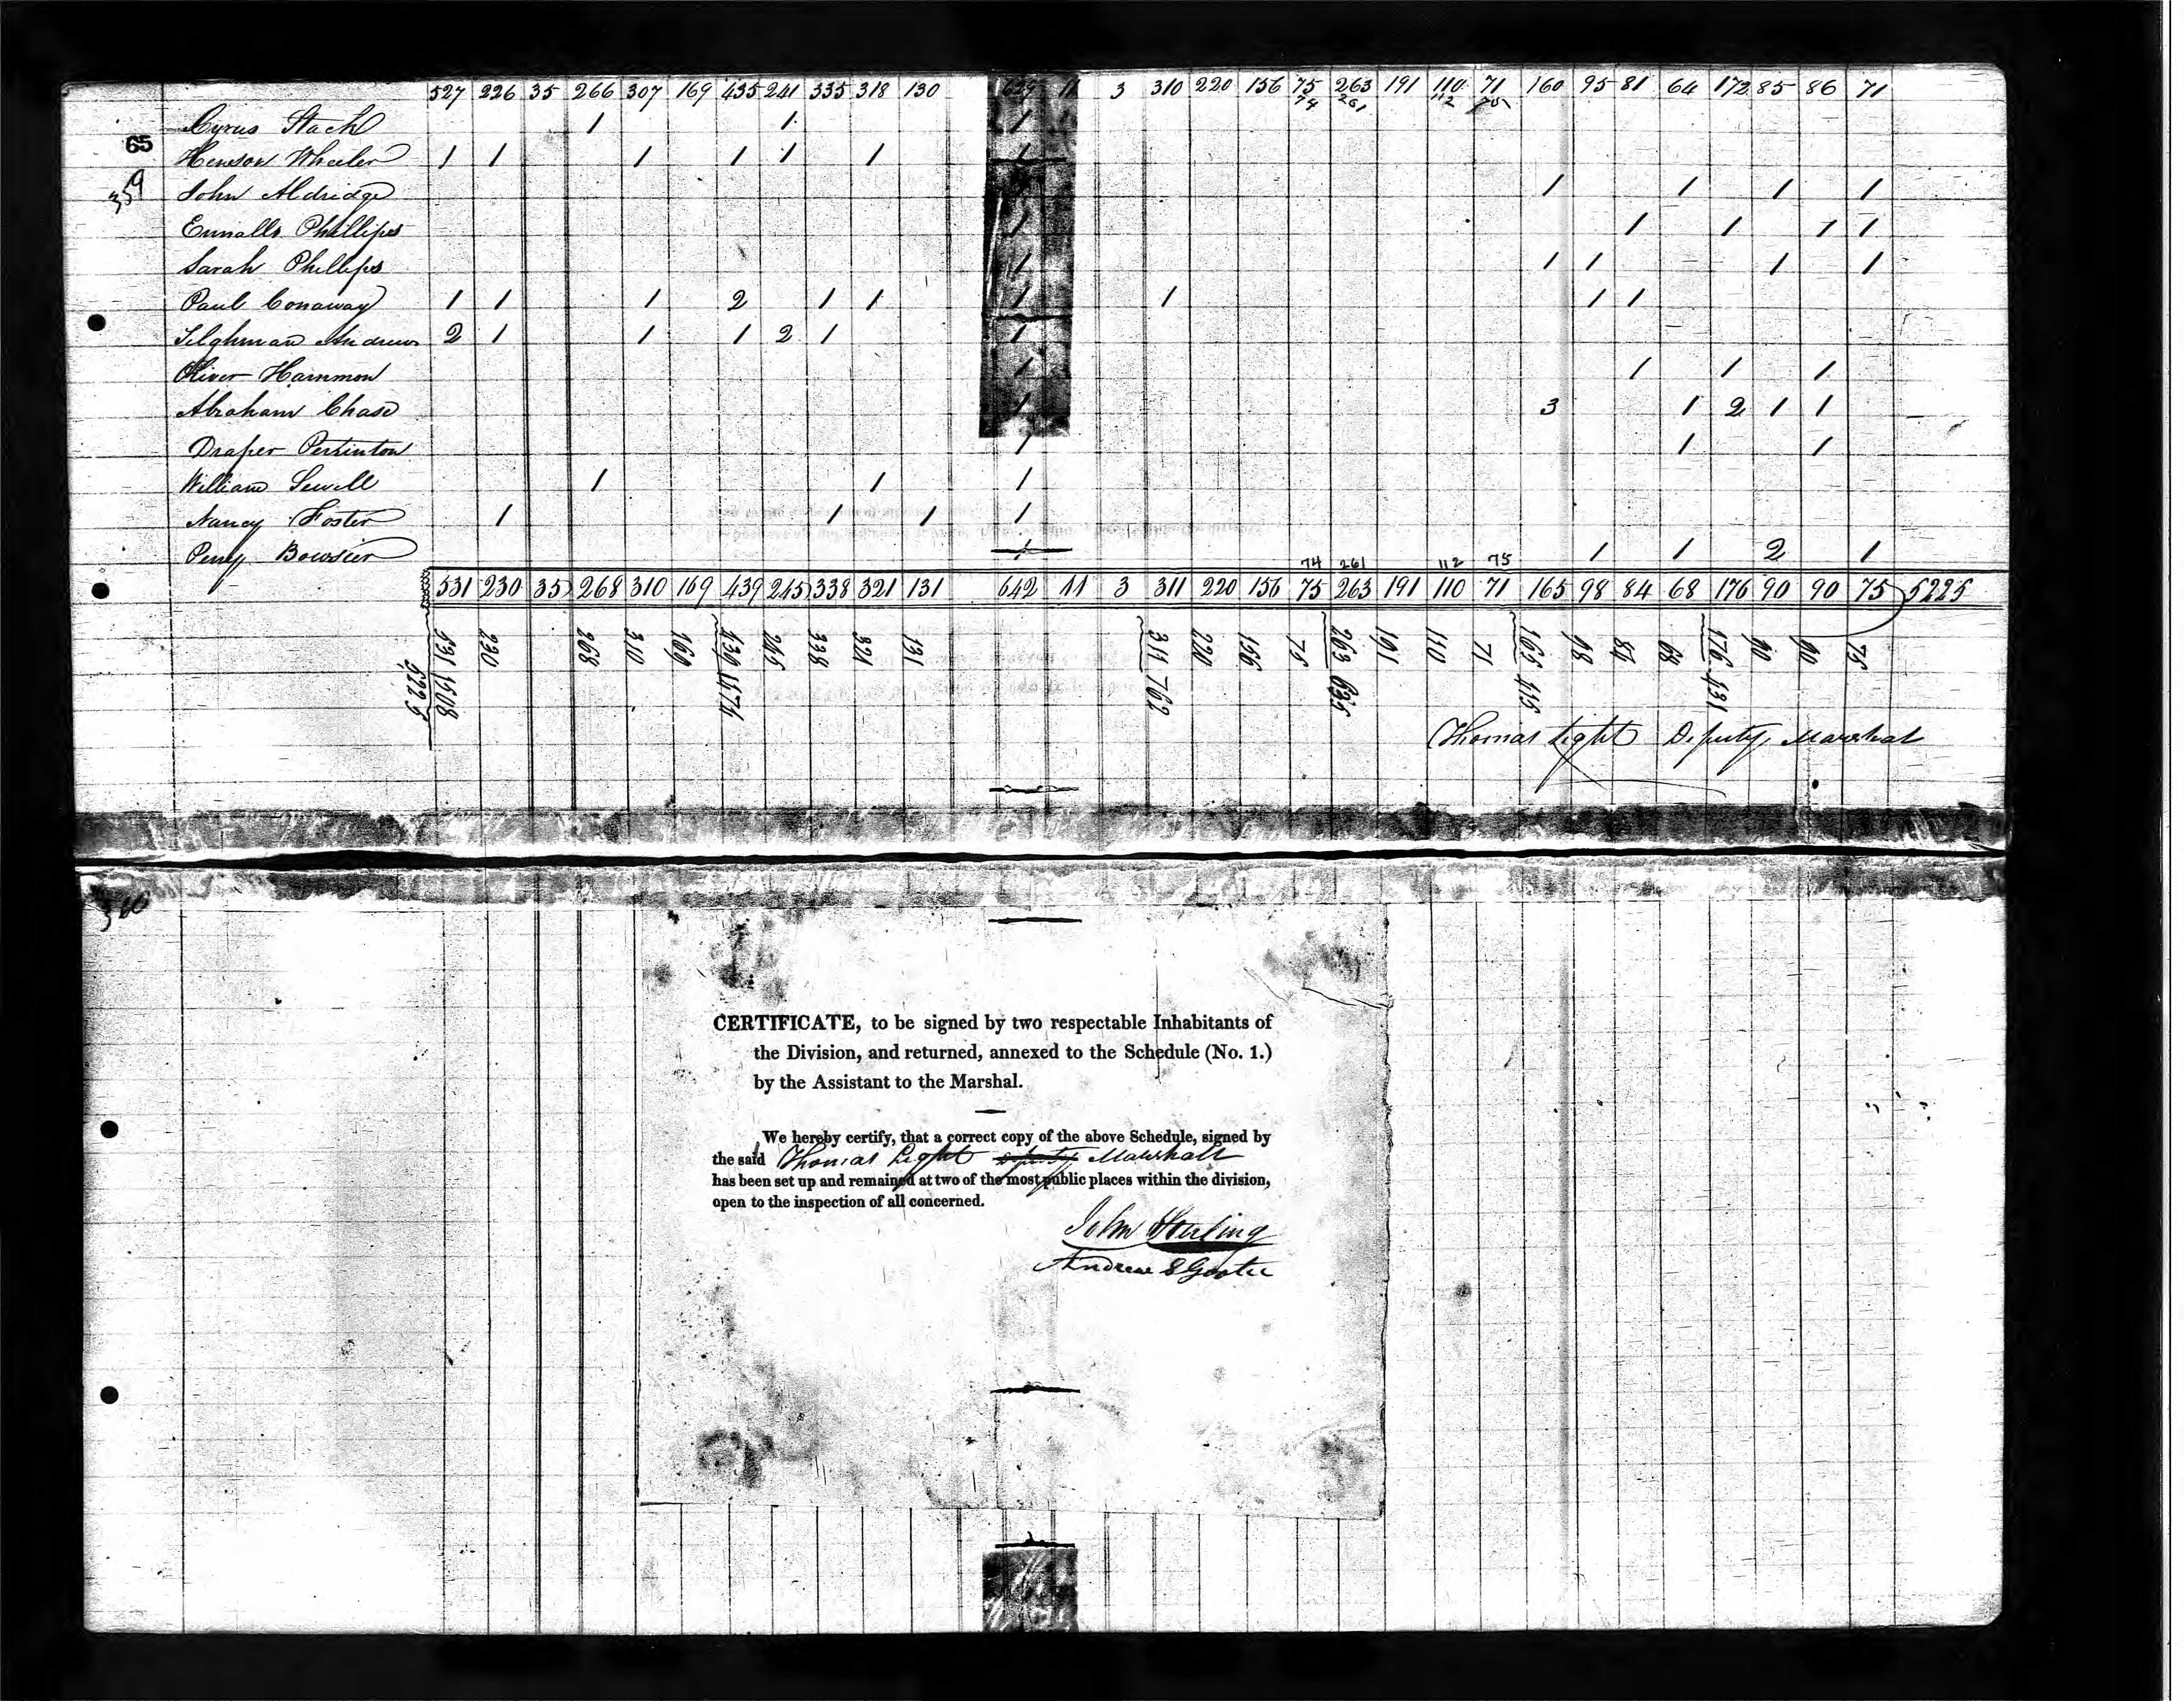 527 226 35 266 307 169 435 241 335 318 130 629 11 3 310 220 156 75 263 191 110 71 160 95 81 64 172 85 86 71
74 261 112 75
Cyrus Stack 1 1 1
65
Henson Wheeler 1 1 1 1 1 1 1
359
John Aldridge 1 1 1 1
Ennalls Phillips 1 1 1 1 1
Sarah Phillips 1 1 1 1 1
Paul Conaway 1 1 1 2 1 1 1 1 1 1
Tilghman Andrews 2 1 1 1 2 1 1
Oliver Hammon 1 1 1 1
Abraham Chase 1 3 1 2 1 1
Draper 1 1 1
William Sewell 1 1 1
Nancy Foster 1 1 1 1
Perry Bowsier 1 1 1 2 1
74 261 112 75
531 230 35 268 310 169 439 245 338 321 131 642 11 3 311 220 156 75 263 191 110 71 165 98 84 68 176 90 90 75 5225
531 230 268 310 169 439 245 338 321 131 311 220 156 75 263 191 110 71 165 98 84 68 176 90 90 75
5225 1508 1474 762 635 415 431
Thomas Light Deputy Marshal
360
CERTIFICATE, to be signed by two respectable Inhabitants of
the Division, and returned, annexed to the Schedule (No. 1.)
by the Assistant to the Marshal.
We hereby certify, that a correct copy of the above Schedule, signed by
the said Thomas Light Deputy Marshall
has been set up and remained at two of the most public places within the division,
open to the inspection of all concerned.
John Sterling
Andrew S Gootee